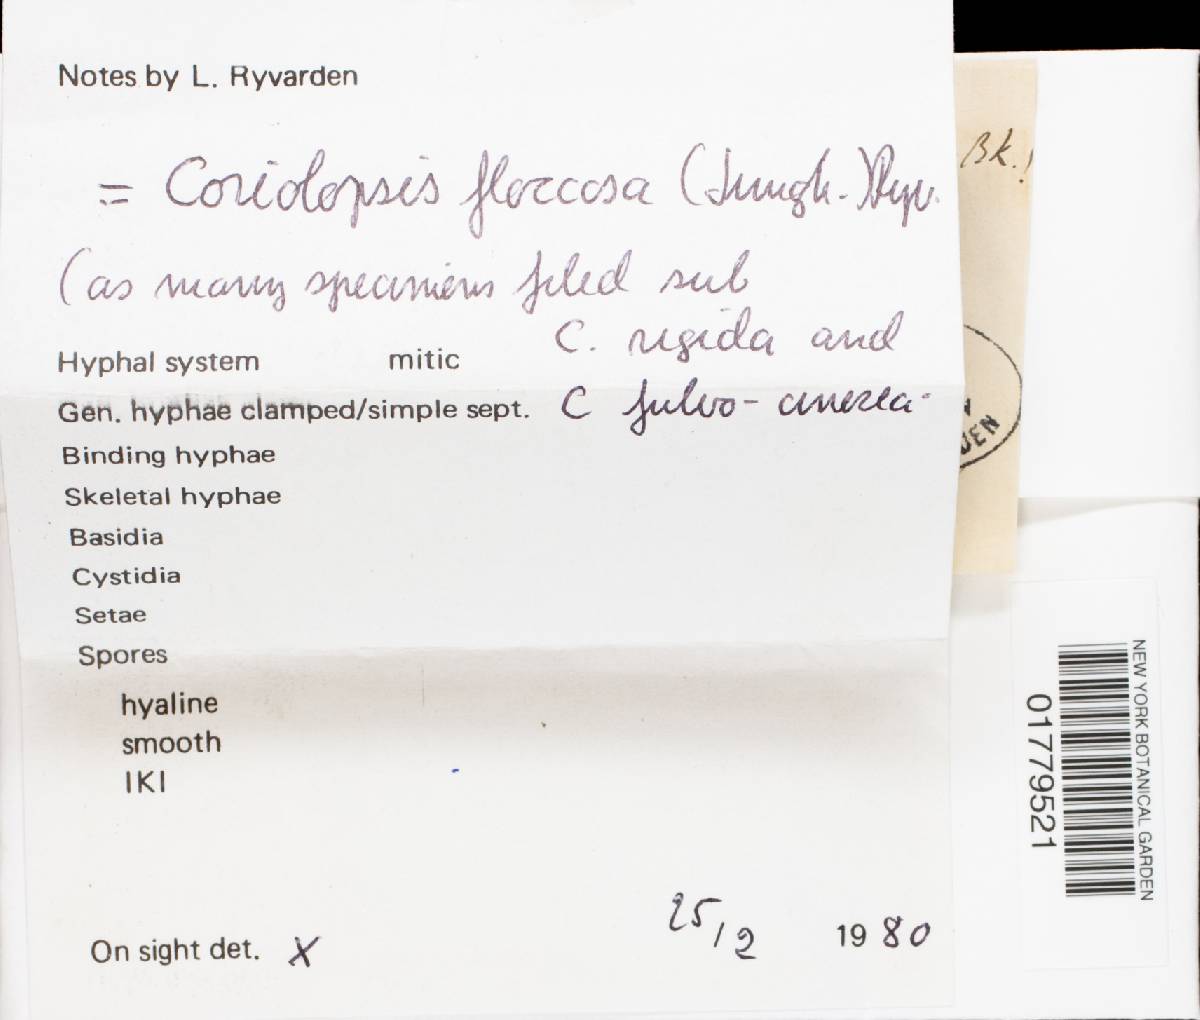 Notes by L. Ryvarden
= Coriolopsis floccosa (Jungh.) Ryv.
(as many specimens filed sub
C. rigida and
C fulvo-cinerea.
Hyphal system mitic
Gen. hyphae clamped/simple sept.
Binding hyphae
Skeletal hyphae
Basidia
Cystidia
Setae
Spores
hyaline
smooth
IKI
On sight det. X 25/2 1980
Bk.!
DEN
NEW YORK BOTANICAL GARDEN
01779521